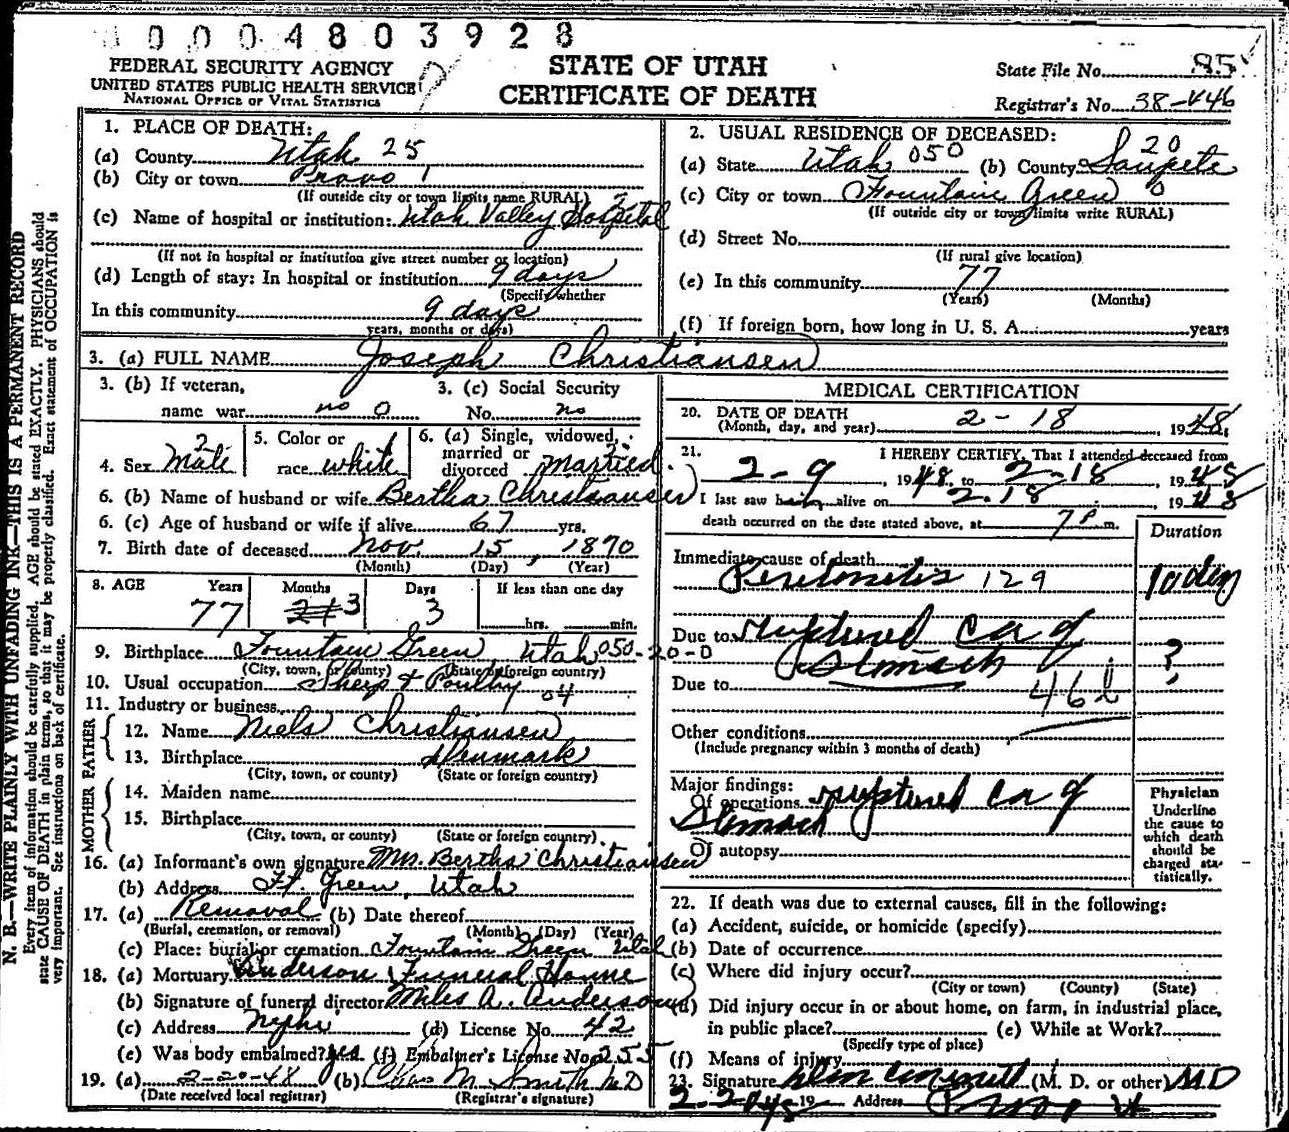 0004803928
FEDERAL SECURITY AGENCY
UNITED STATES PUBLIC HEALTH SERVICE
NATIONAL OFFICE OF VITAL STATISTICS
STATE OF UTAH
CERTIFICATE OF DEATH
State File No. 85
Registrar's No. 38-446
N. B.—WRITE PLAINLY WITH UNFADING INK—THIS IS A PERMANENT RECORD
Every item of information should be carefully supplied. AGE should be stated EXACTLY. PHYSICIANS should
state CAUSE OF DEATH in plain terms, so that it may be properly classified. Exact statement of OCCUPATION is
very important. See instructions on back of certificate.
1. PLACE OF DEATH:
(a) County Utah 25
(b) City or town Provo 1
(If outside city or town limits name RURAL)
(c) Name of hospital or institution: Utah Valley Hospital
(If not in hospital or institution give street number or location)
(d) Length of stay: In hospital or institution 9 days
(Specify whether
In this community 9 days
years, months or days)
2. USUAL RESIDENCE OF DECEASED:
(a) State Utah 050 (b) County Sanpete 20
(c) City or town Fountain Green 0
(If outside city or town limits write RURAL)
(d) Street No.
(If rural give location)
(e) In this community 77
(Years) (Months)
(f) If foreign born, how long in U. S. A. years
3. (a) FULL NAME Joseph Christiansen
3. (b) If veteran,
name war no 0
3. (c) Social Security
No. no
4. Sex Male 2
5. Color or
race white 1
6. (a) Single, widowed,
married or
divorced married 2
6. (b) Name of husband or wife Bertha Christiansen
6. (c) Age of husband or wife if alive 67 yrs.
7. Birth date of deceased Nov. 15, 1870
(Month) (Day) (Year)
8. AGE Years Months Days If less than one day
77 3 3 hrs. min.
9. Birthplace Fountain Green Utah 050-20-0
(City, town, or county) (State or foreign country)
10. Usual occupation Sheep & Poultry 04
11. Industry or business
FATHER
12. Name Niels Christiansen
13. Birthplace Denmark
(City, town, or county) (State or foreign country)
MOTHER
14. Maiden name
15. Birthplace
(City, town, or county) (State or foreign country)
16. (a) Informant's own signature Mrs. Bertha Christiansen
(b) Address Ft. Green, Utah
17. (a) Removal (b) Date thereof
(Burial, cremation, or removal) (Month) (Day) (Year)
(c) Place: burial or cremation Fountain Green Utah
18. (a) Mortuary Anderson Funeral Home
(b) Signature of funeral director Miles A. Anderson
(c) Address Nephi (d) License No. 42
(e) Was body embalmed? yes (f) Embalmer's License No. 255
19. (a) 2-20-48 (b) Chas M. Smith M D
(Date received local registrar) (Registrar's signature)
MEDICAL CERTIFICATION
20. DATE OF DEATH
(Month, day, and year) 2-18, 1948.
21. I HEREBY CERTIFY, That I attended deceased from
2-9, 1948, to 2-18, 1948
I last saw him alive on 2.18, 1948
death occurred on the date stated above, at 7P m.
Duration
Immediate cause of death
Peritonitis 129
Due to ruptured ca of
Stomach
?
Due to 46b
Other conditions
(Include pregnancy within 3 months of death)
Major findings:
Of operations ruptured ca of
Stomach
Of autopsy
Physician
Underline
the cause to
which death
should be
charged sta-
tistically.
22. If death was due to external causes, fill in the following:
(a) Accident, suicide, or homicide (specify)
(b) Date of occurrence
(c) Where did injury occur?
(City or town) (County) (State)
(d) Did injury occur in or about home, on farm, in industrial place,
in public place? (e) While at Work?
(Specify type of place)
(f) Means of injury
23. Signature (M. D. or other) MD
19 Address Provo Ut